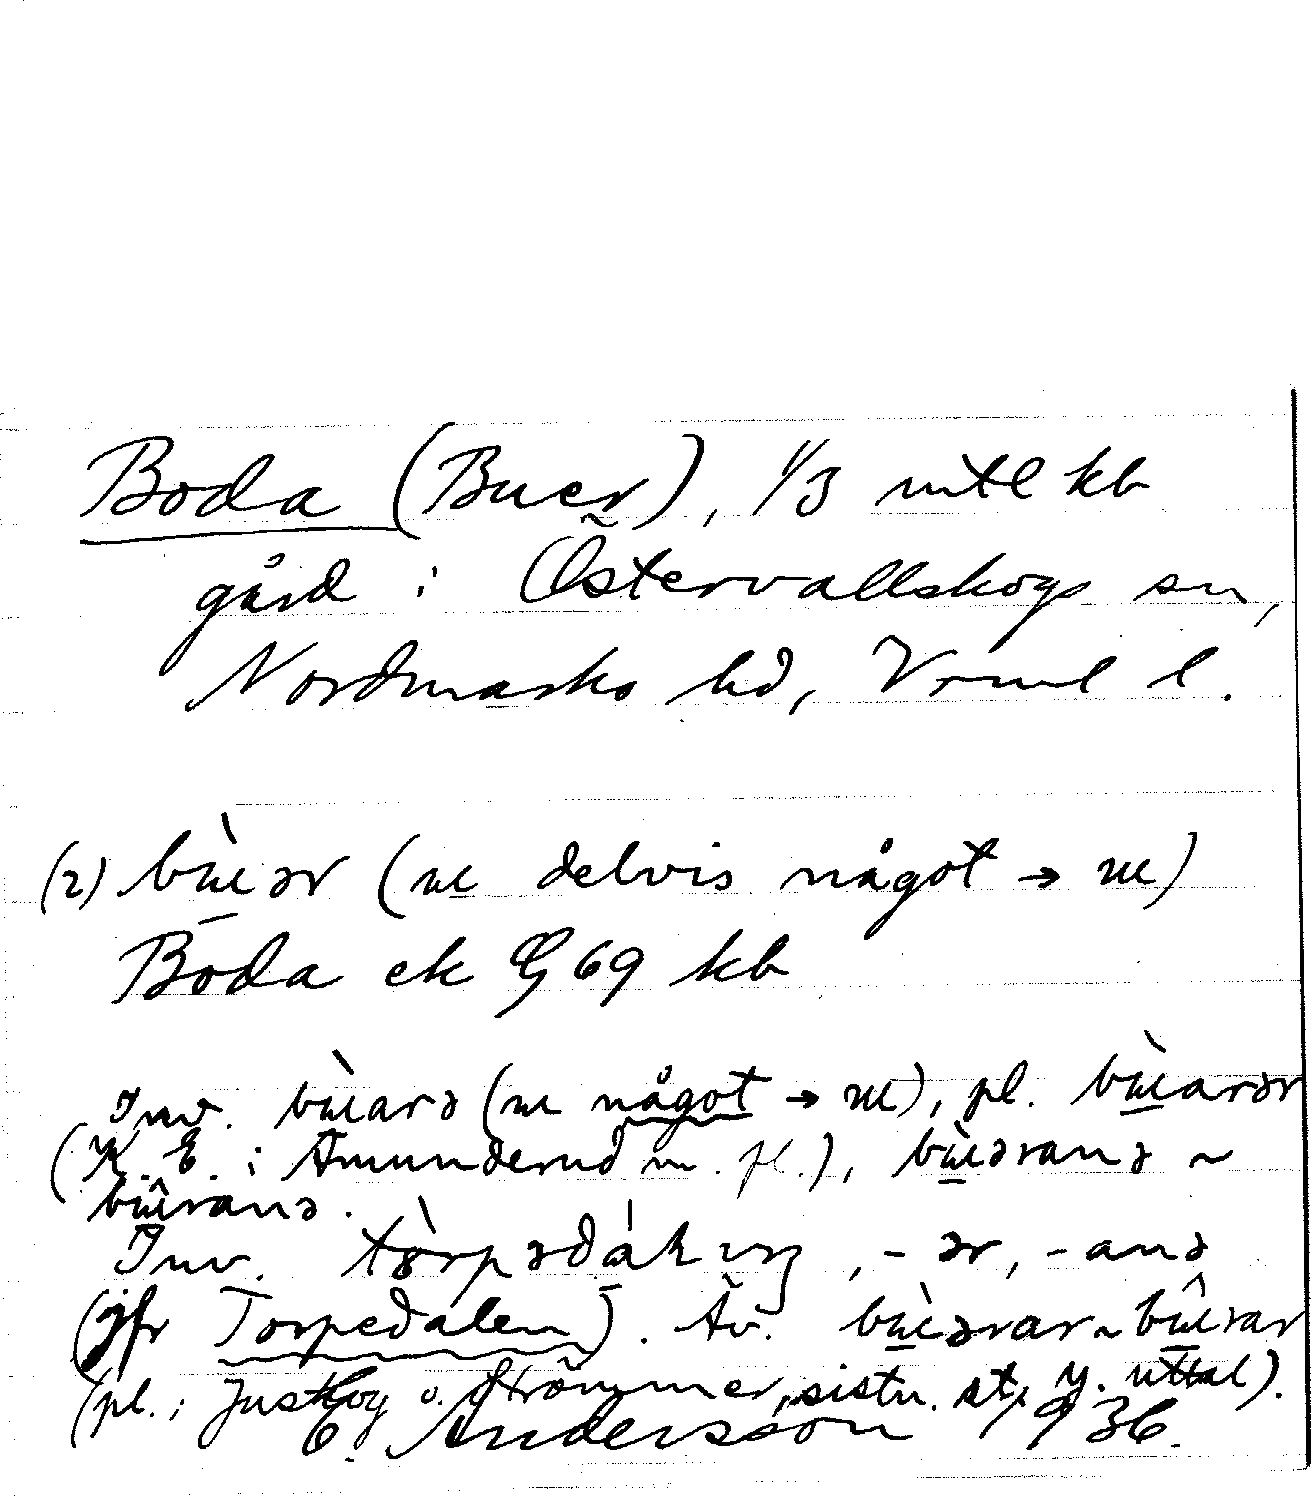 Boda (Buer), 1/3 mtl kb
gård i Östervallskogs sn,
Nordmarks hd, Vrml l.
(2) bɯ̀ər (ɯ delvis något → ɯ)
Boda ek G 69 kb
Inv. bɯ̀arə (ɯ något → ɯ), pl. bɯ̀arər
(K. E. i Åmunderud m. fl.), bɯ̀əranə ~
bɯ̂ranə.
Inv. , -ər, -anə
(jfr Torpedalen). Äv. bɯ̀ərar ~ bɯ̂rar
(pl. i Justkog o. Strömmer, sistn. st. y. uttal).
E. Andersson 1936.